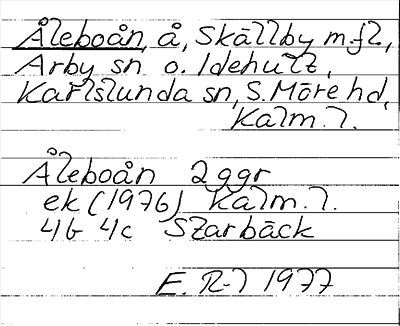 Åleboån, å, Skällby m.fl.,
Arby sn o. Idehult,
Karlslunda sn, S. Möre hd,
Kalm. l.
Åleboån 2 ggr
ek (1976) Kalm. l.
4b 4c Starbäck
E. R-l 1977